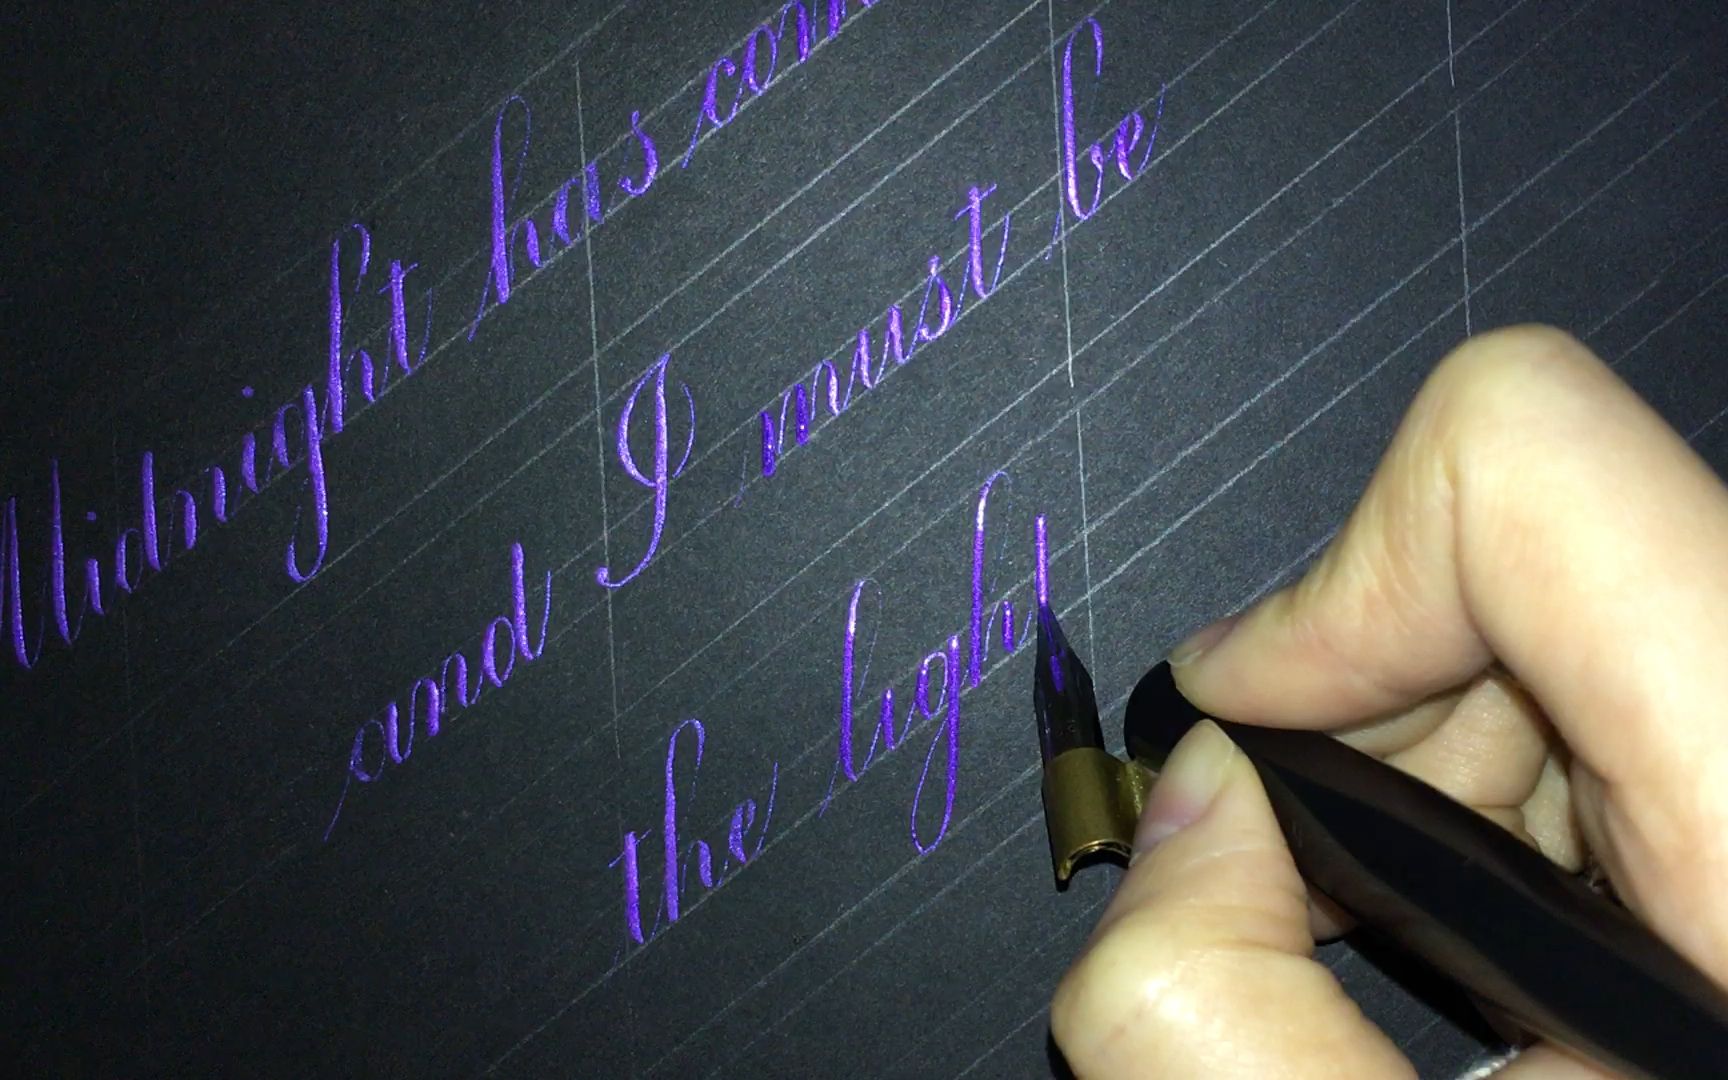 Midnight has com
and I must be
the light